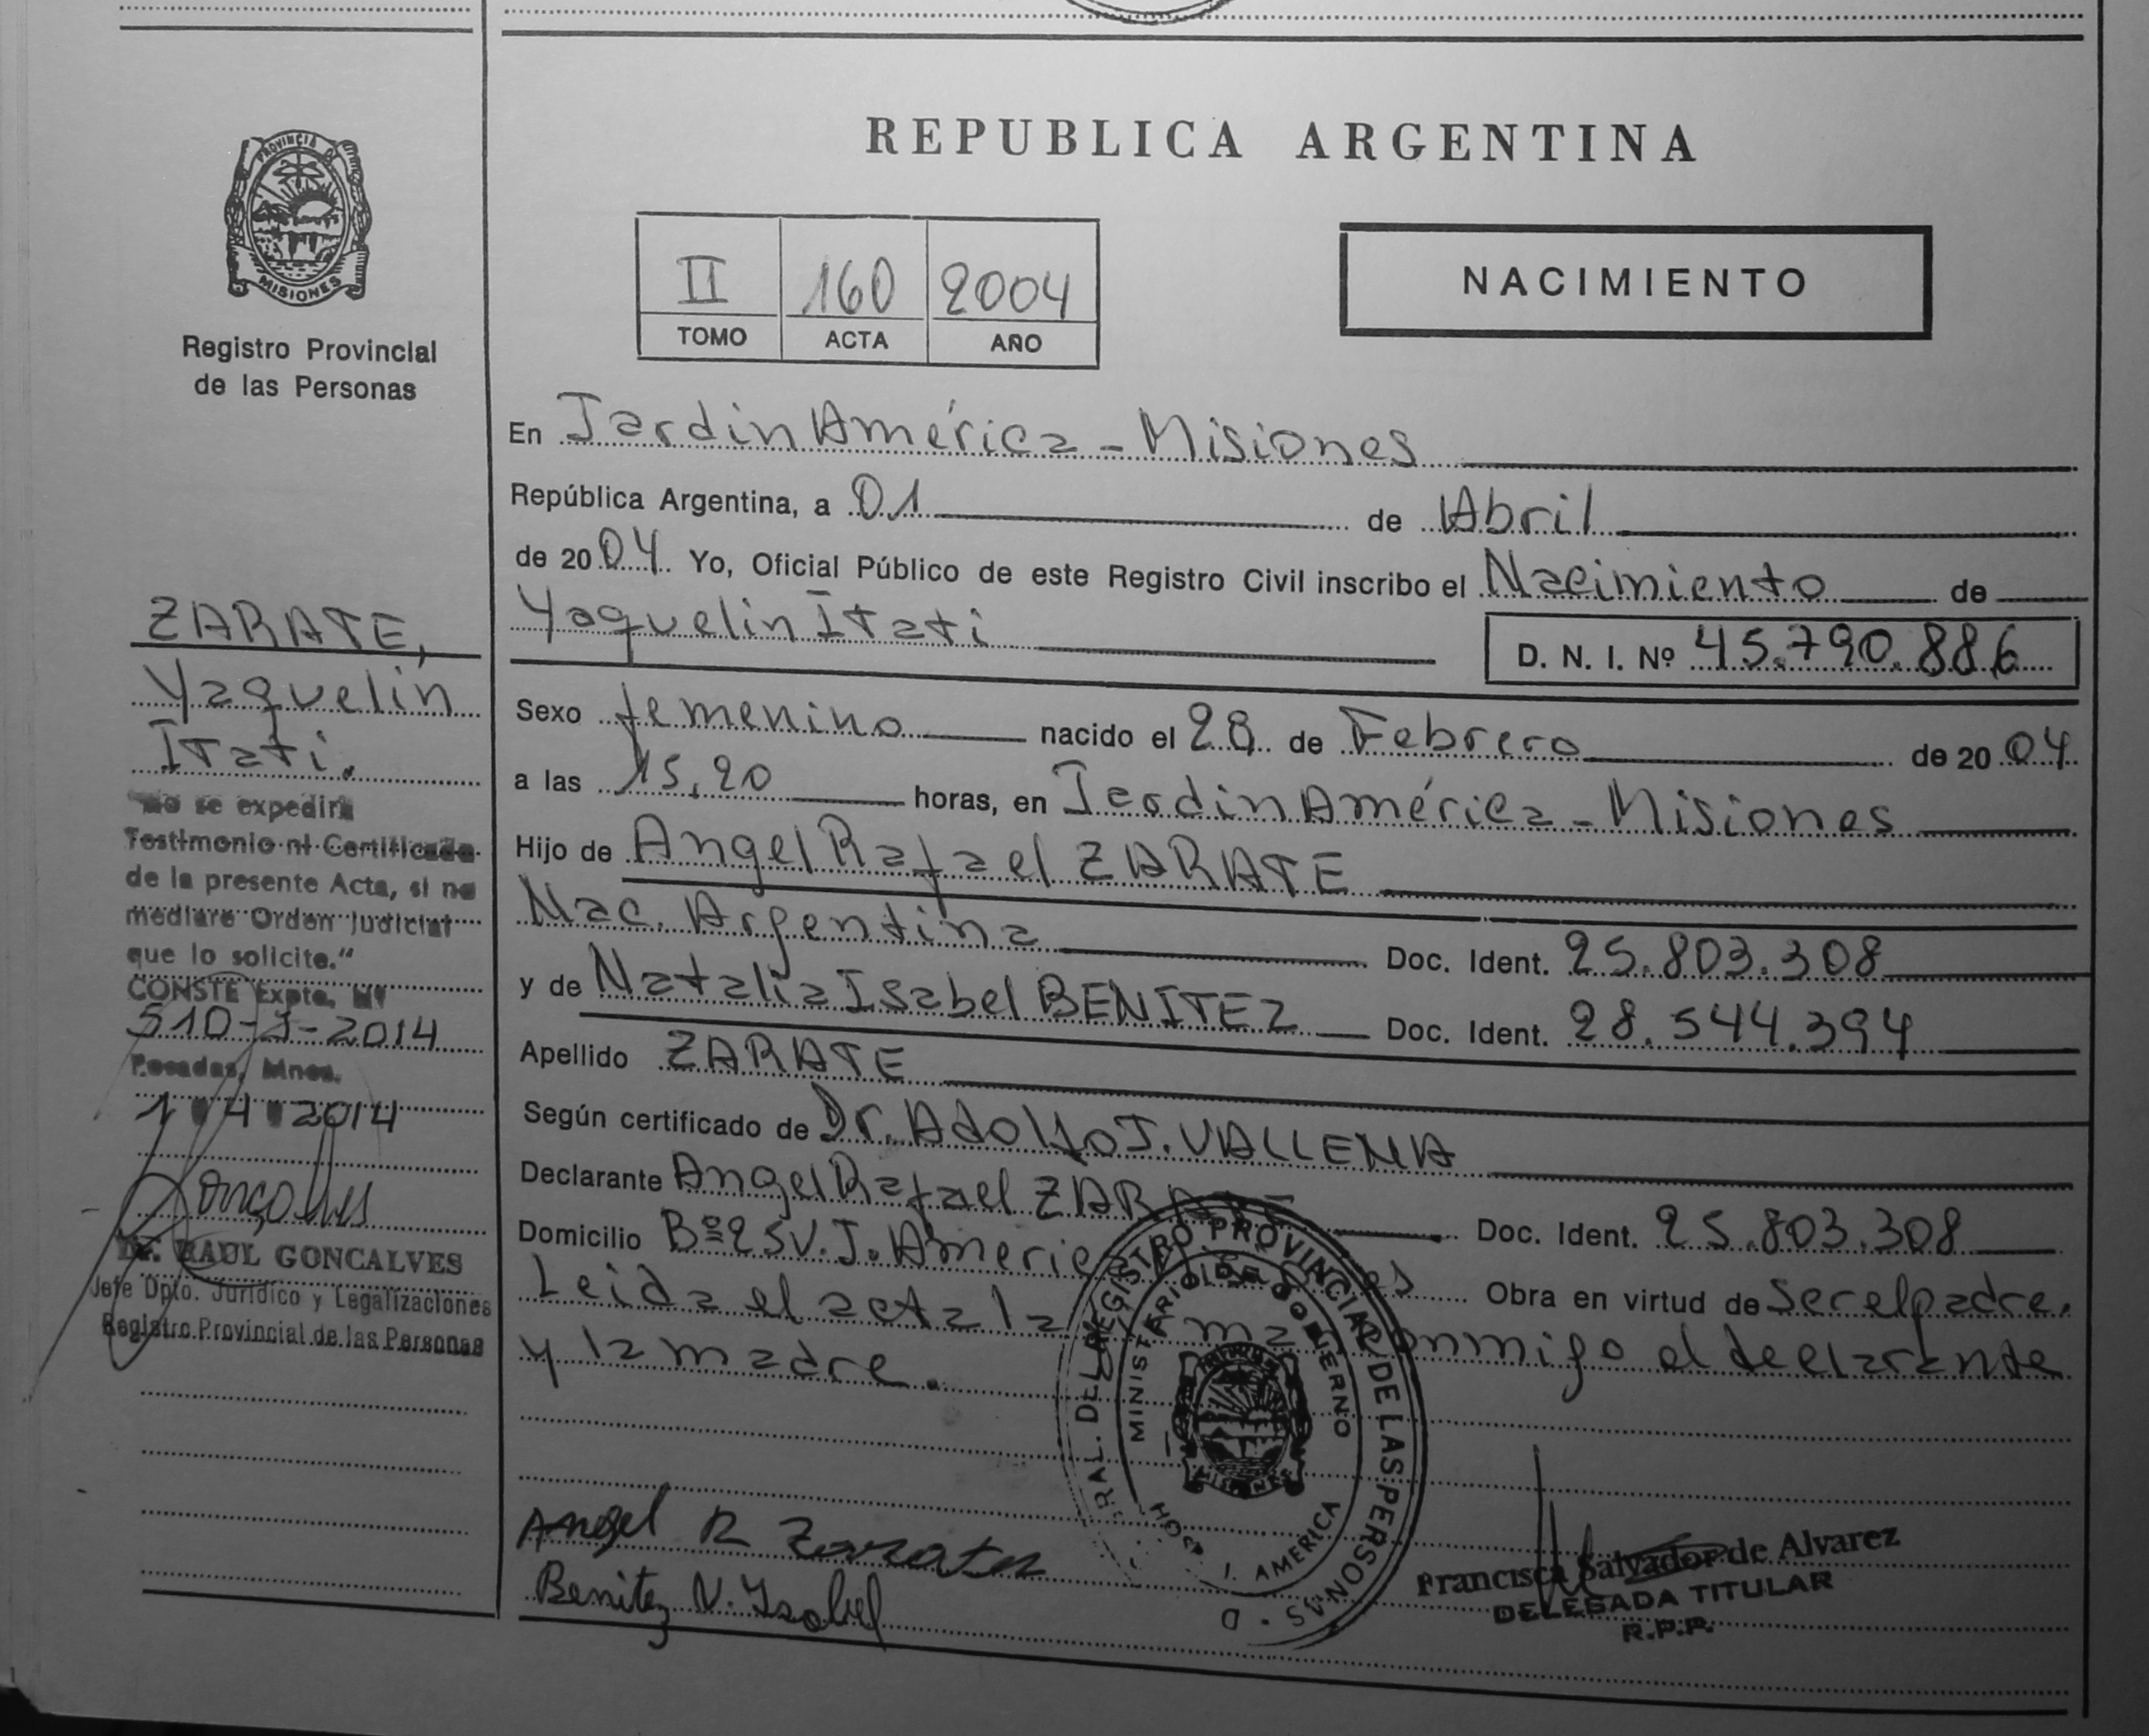 PROVINCIA D
MISIONES
Registro Provincial
de las Personas
ZARATE,
Yaquelin
Itati.
"No se expedirá
Testimonio ni Certificado
de la presente Acta, si no
mediare Orden Judicial
que lo solicite."
CONSTE Expte. Nº
2014
Posadas, Mnes.
1 4 2014
Dr. RAUL GONCALVES
Jefe Dpto. Jurídico y Legalizaciones
Registro Provincial de las Personas
REPUBLICA ARGENTINA
II 160 2004
TOMO ACTA AÑO
NACIMIENTO
En Jardin América - Misiones
República Argentina, a 01 de Abril
de 2004 Yo, Oficial Público de este Registro Civil inscribo el Nacimiento de
Yaquelin Itati
D. N. I. Nº 45.790.886
Sexo femenino nacido el de Febrero de 2004
a las 15,20 horas, en Jardin América - Misiones
Hijo de Angel Rafael ZARATE
Nac. Argentina Doc. Ident. 25.803.308
y de Natalia Isabel BENITEZ Doc. Ident. 28.544.394
Apellido ZARATE
Según certificado de Dr. Adolfo J.
Declarante Angel Rafael ZARATE Doc. Ident. 25.803.308
Domicilio Bº 25 V. J. America Obra en virtud de Ser el padre.
Leida el acta la firma conmigo el declarante
y la madre.
REGISTRO PROVINCIAL DE LAS PERSONAS - D
MINISTERIO DE GOBIERNO
MISIONES
J. AMERICA
Angel R Zarate
Benitez N. Isabel
Francisca Salvador de Alvarez
DELEGADA TITULAR
R.P.P.